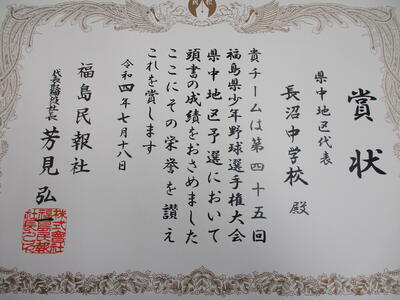 賞状
県中地区代表
長沼中学校 殿
貴チームは第四十五回
福島県少年野球選手権大会
県中地区予選において
頭書の成績をおさめました
ここにその栄誉を讃え
これを賞します
令和四年七月十八日
福島民報社
代表取締役社長 芳見弘一